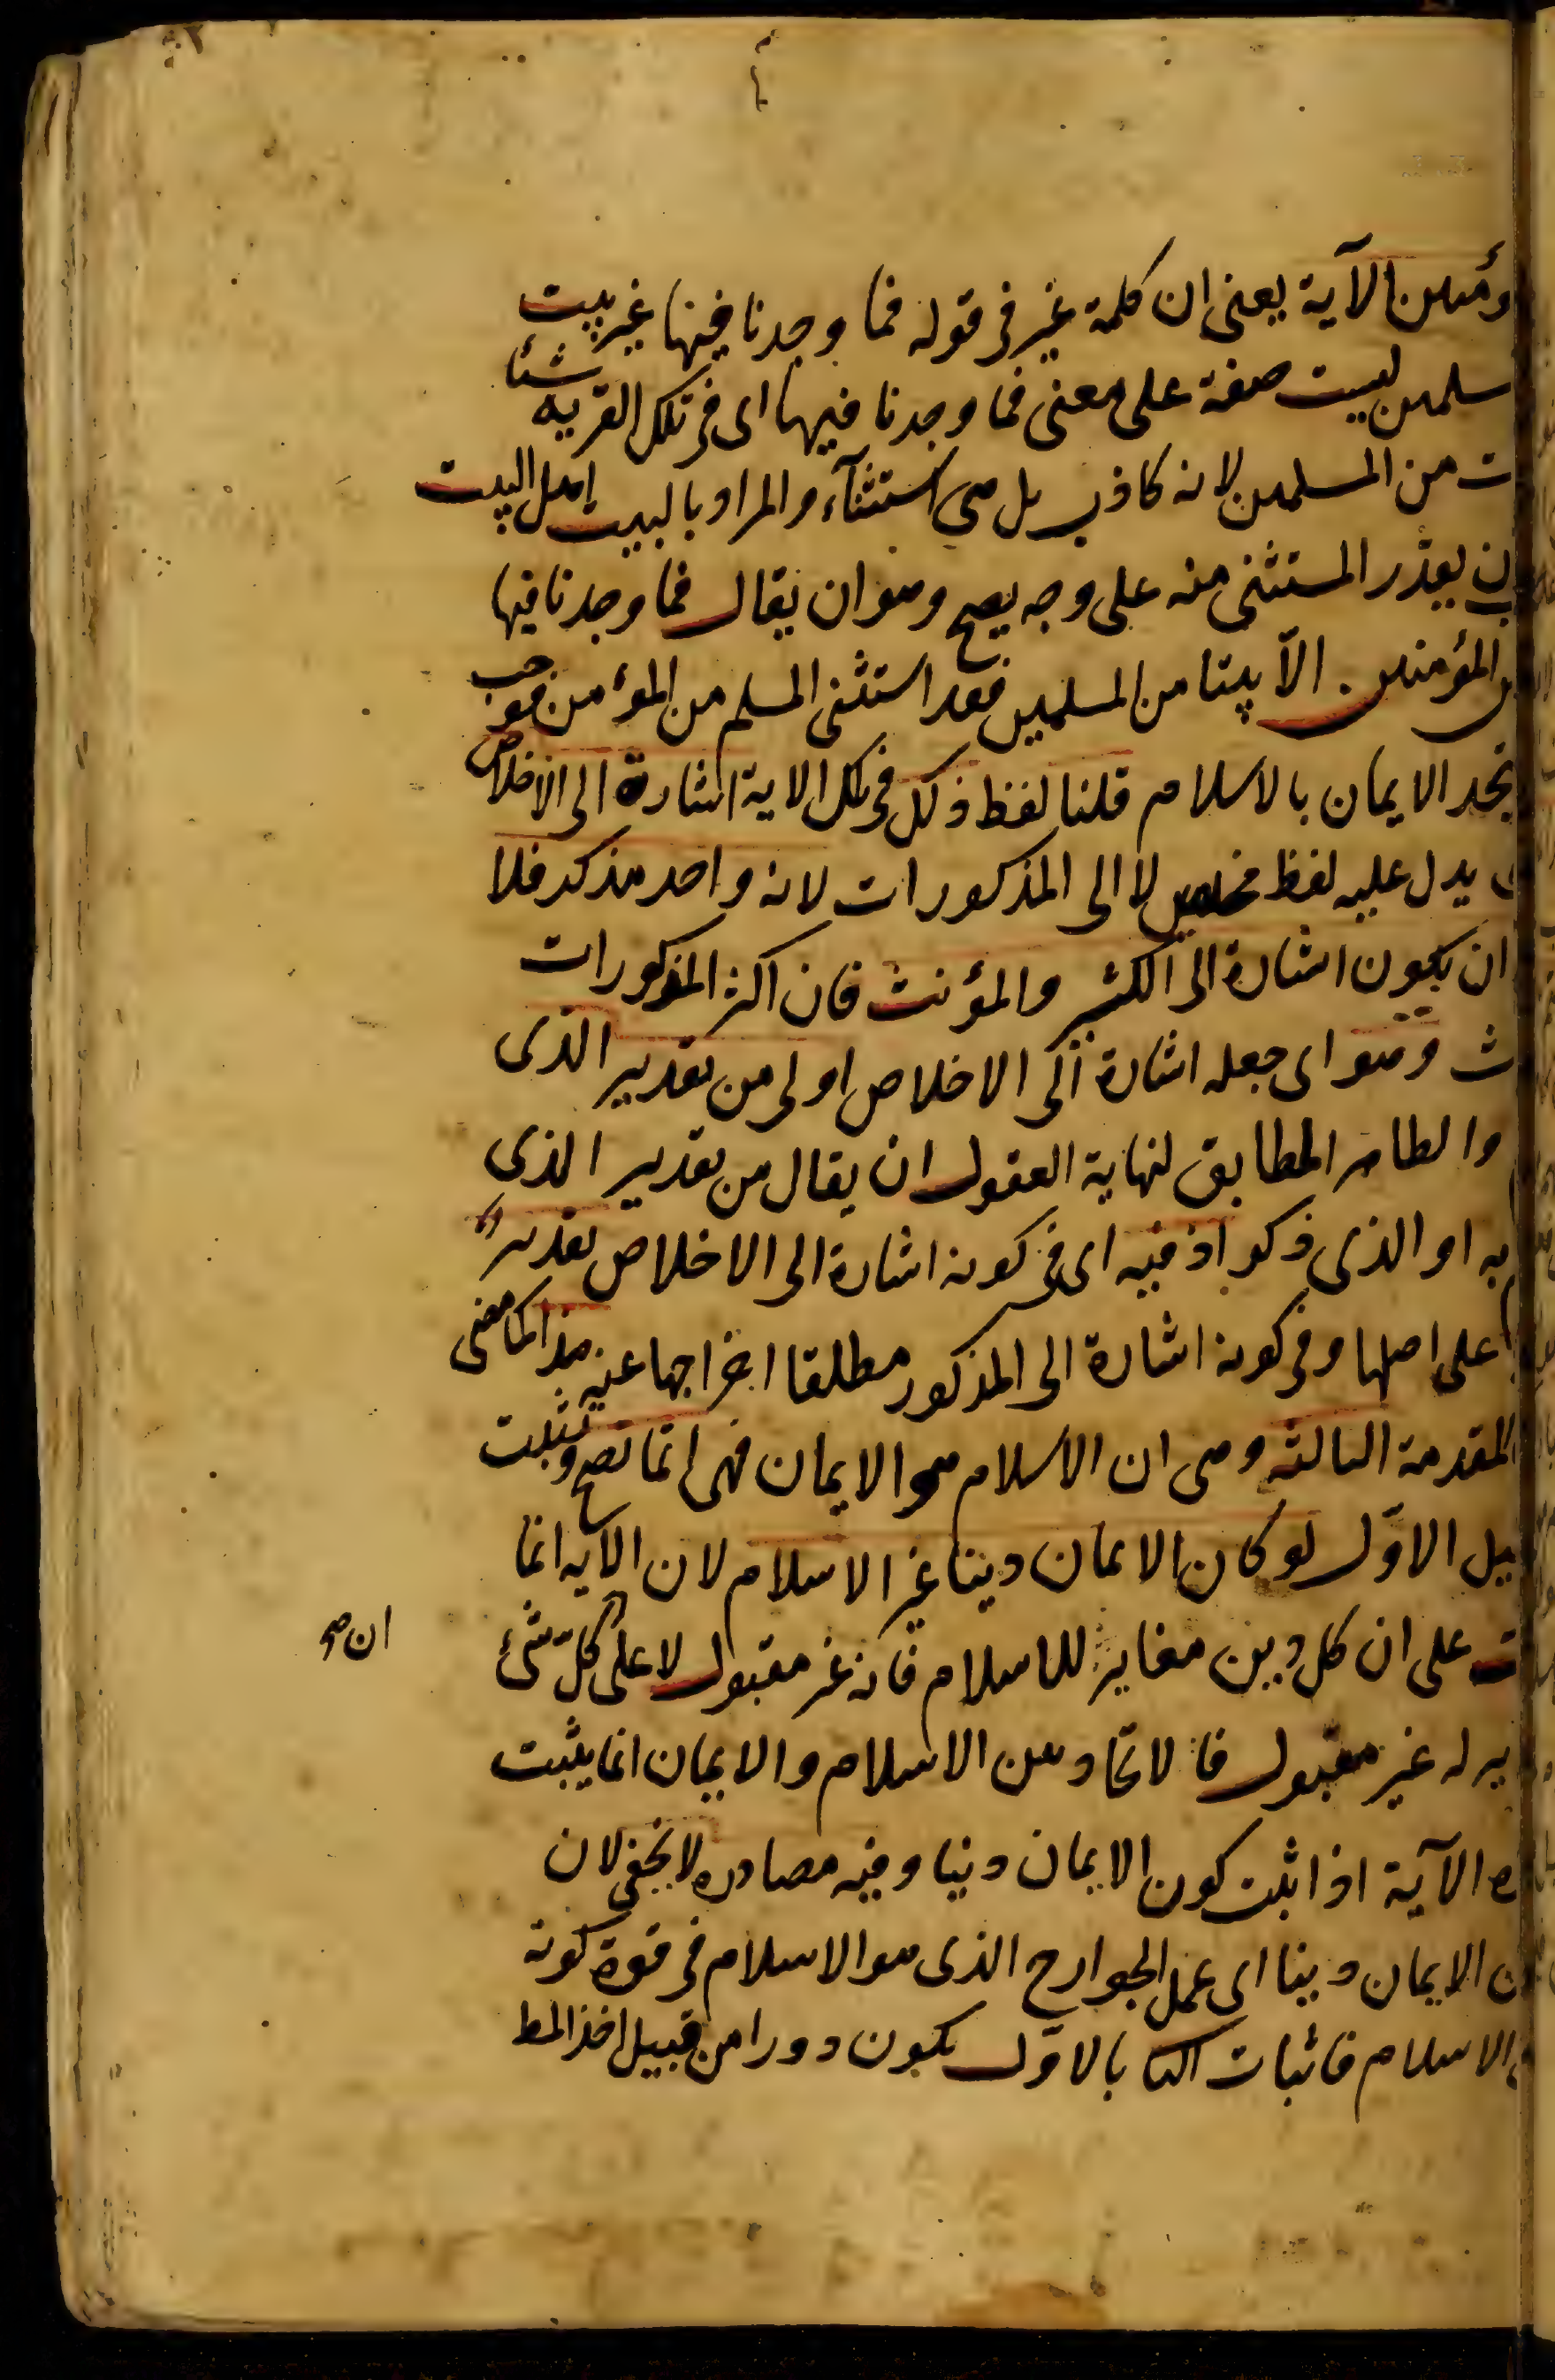 ؤمنين الآية يعنى ان كلمة غير فى قوله فما وجدنا فيها غير بيت
سلمين ليست صفة على معنى فما وجدنا فيها اى فى تلك القرية شيئا
ت من المسلمين لانه كاذب بل هى استثناء والمراد بالبيت اهل البيت
ن يقدر المستثنى منه على وجه يصح وهو ان يقال فما وجدنا فيها
المؤمنين الا بيتا من المسلمين فقد استثنى المسلم من المؤمن فوجب
يتحد الايمان بالاسلام قلنا لفظ ذلك فى تلك الاية اشارة الى الاخلاص
يدل عليه لفظ مخلصين لا الى المذكورات لانه واحد مذكر فلا
ان يكون اشارة الى الكثير والمؤنث فان اكثر المذكورات
ث وهو اى جعله اشارة الى الاخلاص اولى من تقدير الذى
والظاهر المطابق لنهاية العقول ان يقال من تقدير الذى
به او الذى ذكر اذ فيه اى فى كونه اشارة الى الاخلاص تقرير
على اصلها وفى كونه اشارة الى المذكور مطلقا اخراجها عنه هذا كما مضى
المقدمة الثالثة وهى ان الاسلام هو الايمان فهى انما تصح وتثبت
بيل الاول لو كان الايمان دينا غير الاسلام لان الآية انما
ت على ان كل دين مغاير للاسلام فانه غير مقبول لا على كل شئ
ان صح
ير له غير مقبول فالاتحاد بين الاسلام والايمان انما يثبت
ه الآية اذا ثبت كون الايمان دينا وفيه مصادرة لا يخفى لان
ن الايمان دينا اى عمل الجوارح الذى هو الاسلام فى قوة كونه
الاسلام فاثبات الثا بالاول يكون دورا من قبيل اخذ المط